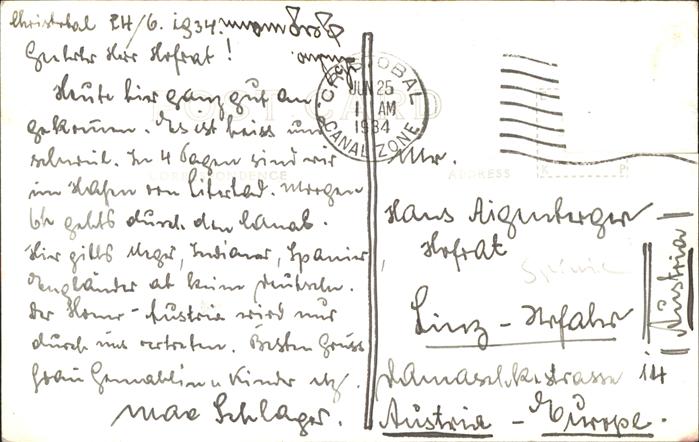 Christobal 24/6. 1934.
Geehrter Herr Hofrat!
Heute hier ganz gut an
gekommen. Es ist heiss und
schwül. In 4 Tagen sind wir
im Hafen von Libertad. Morgen
6h gehts durch den Canal.
Hier gibts Neger, Indianer, Spanier
Engländer aber keine Deutschen.
Der Home-Austria wird nur
durch uns vertreten. Besten Gruss
Frau Gemahlin u Kinder etz.
Max Schlager.
POST CARD
CRISTOBAL
JUN 25
1 AM
1934
CANAL ZONE
CORRESPONDENCE
ADDRESS
K P
Mr.
Hans Aigenberger
Hofrat
Linz - Urfahr
Damaschkestrasse 14
Austria - Europe.
Austria